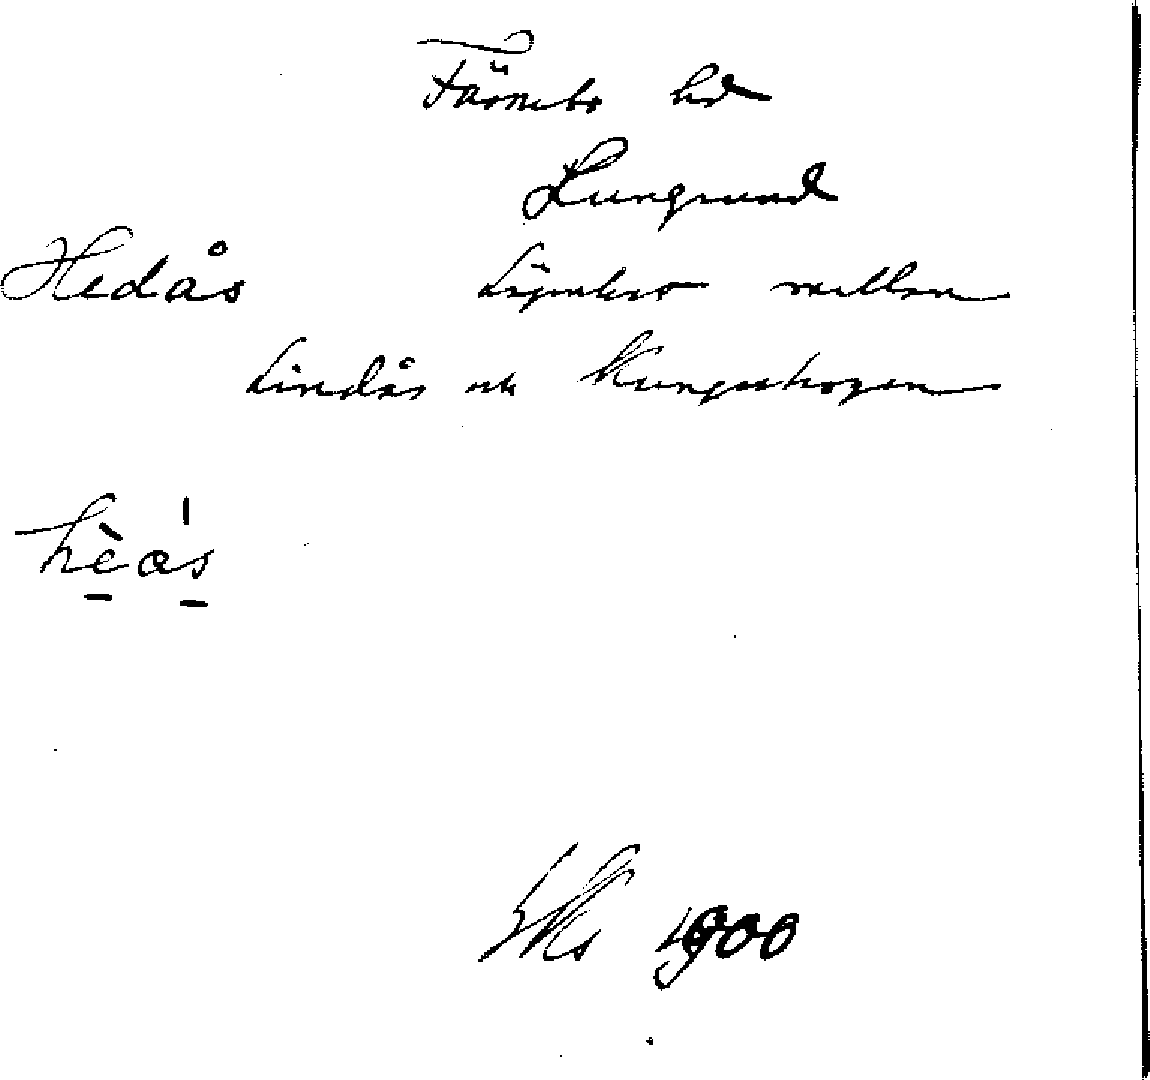 Färnebo hd
Lungsund
Hedås lägenhet mellan
Lindås och Kungsskogen
hèás
1900